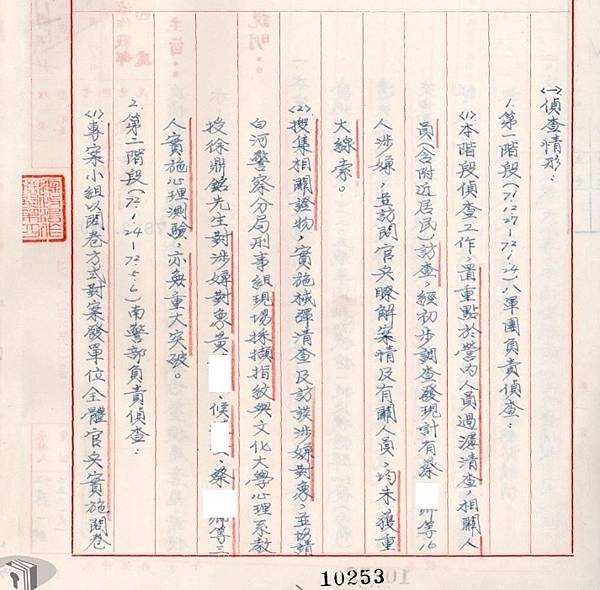 ㈠偵查情形：
1.第一階段(71.12.27－72.1.24)八軍團負責偵查：
⑴本階段偵查工作，置重點於營內人員過濾清查，相關人
員(含附近居民)訪查，經初步調查發現計有蔡 卿等16
人涉嫌，並訪問官兵瞭解案情及有關人員，均未獲重
大線索。
⑵搜集相關證物，實施械彈清查及訪談涉嫌對象，並協請
白河警察分局刑事組現場採擷指紋與文化大學心理系教
授徐鼎銘先生對涉嫌對象黃 、候 、蔡 卿等三
人實施心理測驗，亦無重大突破。
2.第二階段(72.1.24－72.5.6)南警部負責偵查：
⑴專案小組以問卷方式對案發單位全體官兵實施問卷
10253